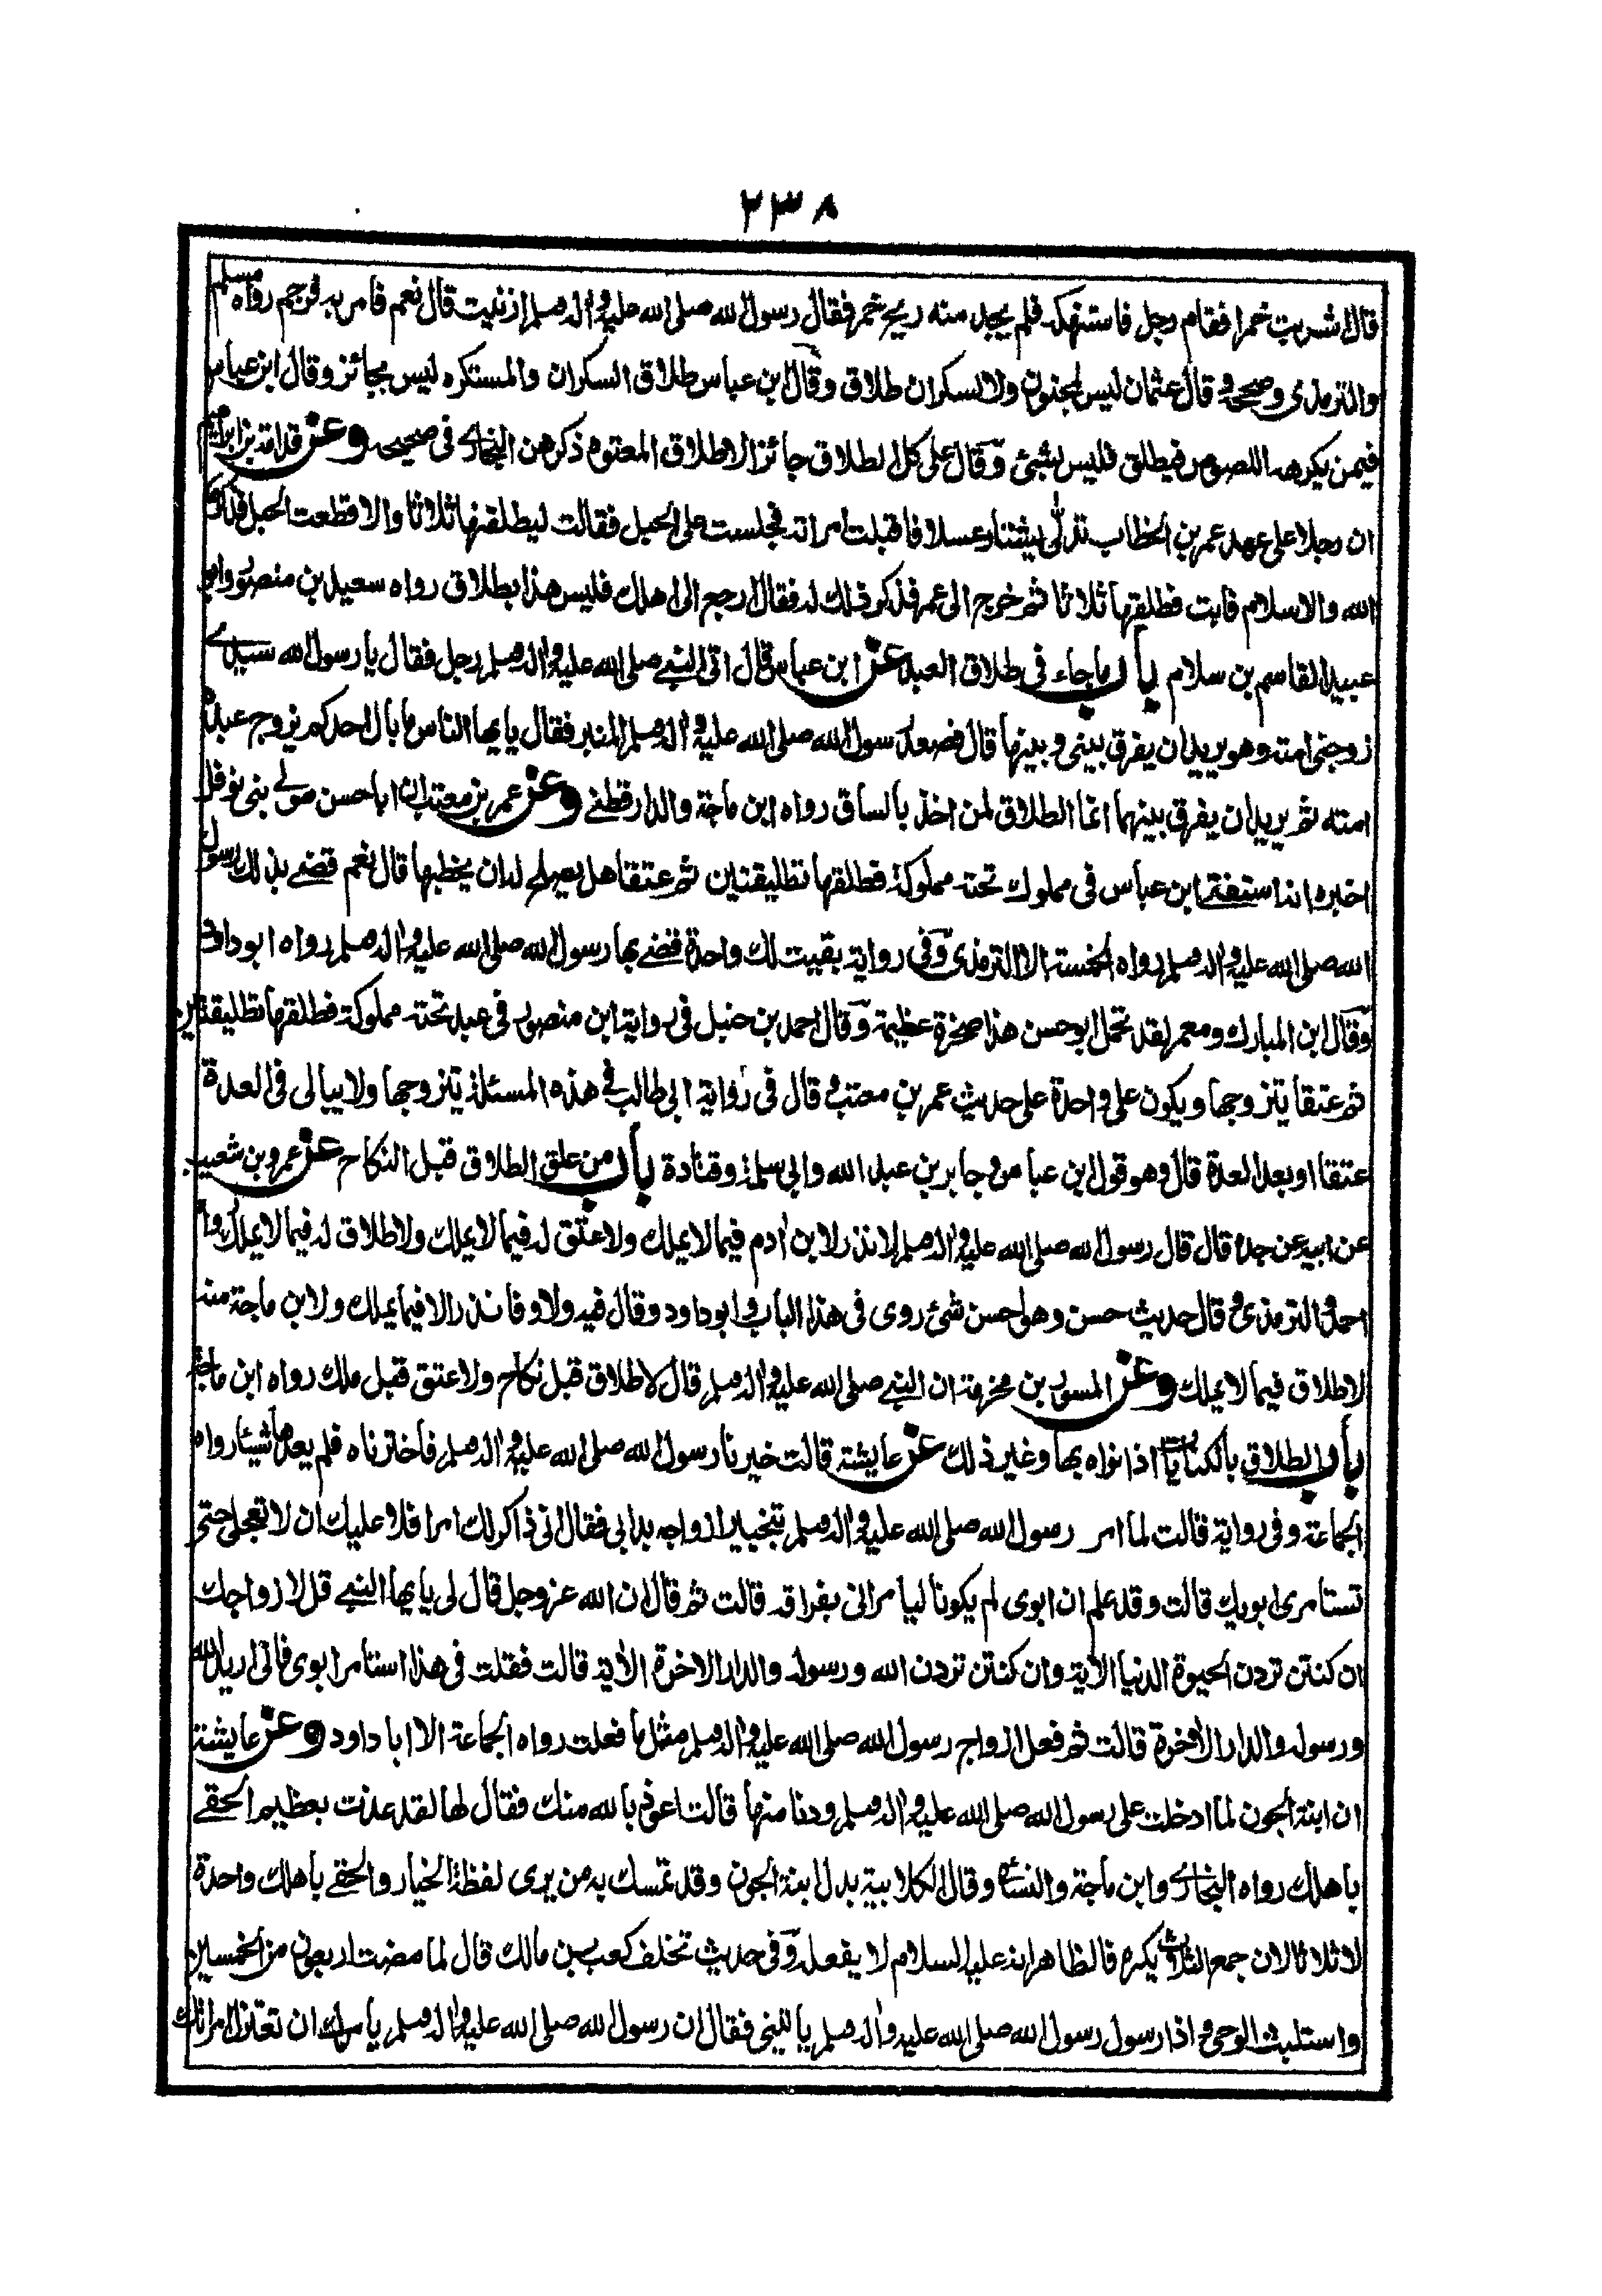 ٢٣٨
قال اشربت خمرا فقام رجل فاستنهكه فلم يجد منه ريح خمر فقال رسول الله صلى الله عليه واله وسلم ازنيت قال نعم فامر به فرجم رواه مسلم
والترمذى وصححه وقال عثمان ليس لمجنون ولا لسكران طلاق وقال ابن عباس طلاق السكران والمستكره ليس بجائز وقال ابن عباس
فيمن يكرهه اللصوص فيطلق فليس بشئ وقال على كل الطلاق جائز الا طلاق المعتوه ذكرهن البخارى فى صحيحه وعن قدامة بن ابراهيم
ان رجلا على عهد عمر بن الخطاب تدلى يشتار عسلا فاقبلت امراته فجلست على الحبل فقالت ليطلقنها ثلاثا والا قطعت الحبل فذكرها
الله والاسلام فابت فطلقها ثلاثا ثم خرج الى عمر فذكر ذلك له فقال ارجع الى اهلك فليس هذا بطلاق رواه سعيد بن منصور وابو
عبيد القاسم بن سلام باب ماجاء فى طلاق العبد عن ابن عباس قال اتى النبى صلى الله عليه واله وسلم رجل فقال يا رسول الله سيدى
زوجنى امته وهو يريد ان يفرق بينى وبينها قال فصعد رسول الله صلى الله عليه واله وسلم المنبر فقال يايها الناس ما بال احدكم يزوج عبده
امته ثم يريد ان يفرق بينهما انما الطلاق لمن اخذ بالساق رواه ابن ماجة والدارقطنى وعن عمر بن معتب ان ابا حسن مولى بنى نوفل
اخبره انه استفتى ابن عباس فى مملوك تحته مملوكة فطلقها تطليقتين ثم عتقا هل يصلح له ان يخطبها قال نعم قضى بذلك رسول
الله صلى الله عليه واله وسلم رواه الخمسة الا الترمذى وفى رواية بقيت لك واحدة قضى بها رسول الله صلى الله عليه واله وسلم رواه ابو داود
وقال ابن المبارك ومعمر لقد تحمل ابو حسن هذا صخرة عظيمة وقال احمد بن حنبل فى رواية ابن منصور فى عبد تحته مملوكة فطلقها تطليقتين
ثم عتقا يتزوجها ويكون على واحدة على حديث عمر بن معتب وقال فى رواية ابى طالب فى هذه المسئلة يتزوجها ولا يبالى فى العدة
عتقا او بعد العدة قال وهو قول ابن عباس وجابر بن عبد الله وابى سلمة وقتادة باب من علق الطلاق قبل النكاح عن عمرو بن شعيب
عن ابيه عن جده قال قال رسول الله صلى الله عليه واله وسلم لا نذر لابن ادم فيما لا يملك ولا عتق له فيما لا يملك ولا طلاق له فيما لا يملك رواه
احمد والترمذى وقال حديث حسن وهو احسن شئ روى فى هذا الباب وابو داود وقال فيه ولا وفا نذر الا فيما يملك ولابن ماجة منه
لا طلاق فيما لا يملك وعن المسور بن مخرمة ان النبى صلى الله عليه واله وسلم قال لا طلاق قبل نكاح ولا عتق قبل ملك رواه ابن ماجة
باب الطلاق بالكنايات اذا نواه بها وغير ذلك عن عايشة قالت خيرنا رسول الله صلى الله عليه واله وسلم فاخترناه فلم يعدها شيئا رواه
الجماعة وفى رواية قالت لما امر رسول الله صلى الله عليه واله وسلم بتخيير ازواجه بدا بى فقال انى ذاكر لك امرا فلا عليك ان لا تعجلى حتى
تستامرى ابويك قالت وقد علم ان ابوى لم يكونا ليامرانى بفراقه قالت ثم قال ان الله عز وجل قال لى يايها النبى قل لازواجك
ان كنتن تردن الحيوة الدنيا الاية وان كنتن تردن الله ورسوله والدار الاخرة الاية قالت فقلت فى هذا استامر ابوى فانى اريد الله
ورسوله والدار الاخرة قالت ثم فعل ازواج رسول الله صلى الله عليه واله وسلم مثل ما فعلت رواه الجماعة الا ابا داود وعن عايشة
ان ابنة الجون لما ادخلت على رسول الله صلى الله عليه واله وسلم ودنا منها قالت اعوذ بالله منك فقال لها لقد عذت بعظيم الحقى
باهلك رواه البخارى وابن ماجة والنسائى وقال الكلابية بدل ابنة الجون وقد تمسك به من يرى لفظة الخيار والحقى باهلك واحدة
لا ثلاثا لان جمع الثلاث يكره فالظاهر انه عليه السلام لا يفعله وفى حديث تخلف كعب بن مالك قال لما مضت اربعون من الخمسين
واستلبث الوحى واذا رسول رسول الله صلى الله عليه واله وسلم ياتينى فقال ان رسول الله صلى الله عليه واله وسلم يامرك ان تعتزل امراتك